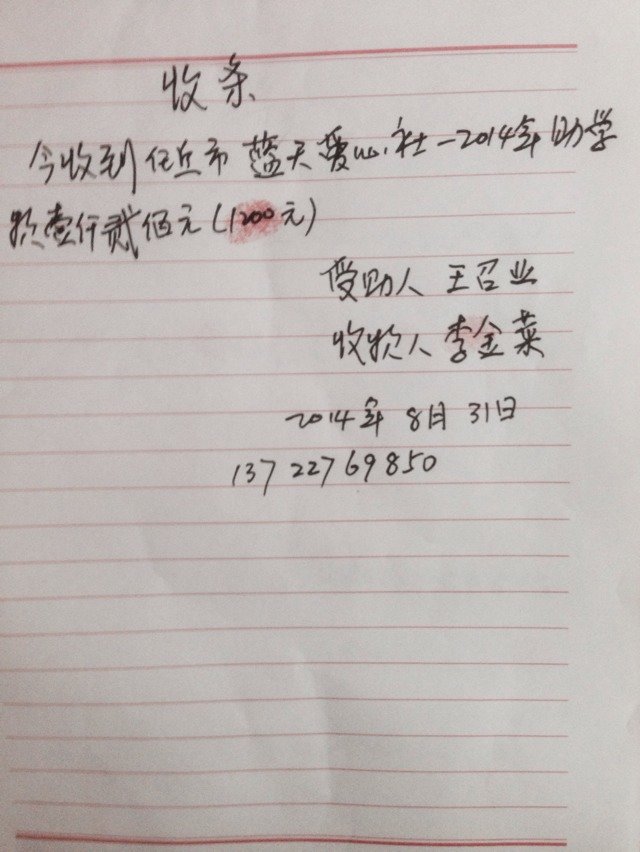 收条
今收到任丘市蓝天爱心社-2014年助学
款壹仟贰佰元(1200元)
受助人 王召业
收款人 李金菜
2014年 8月 31日
13722769850